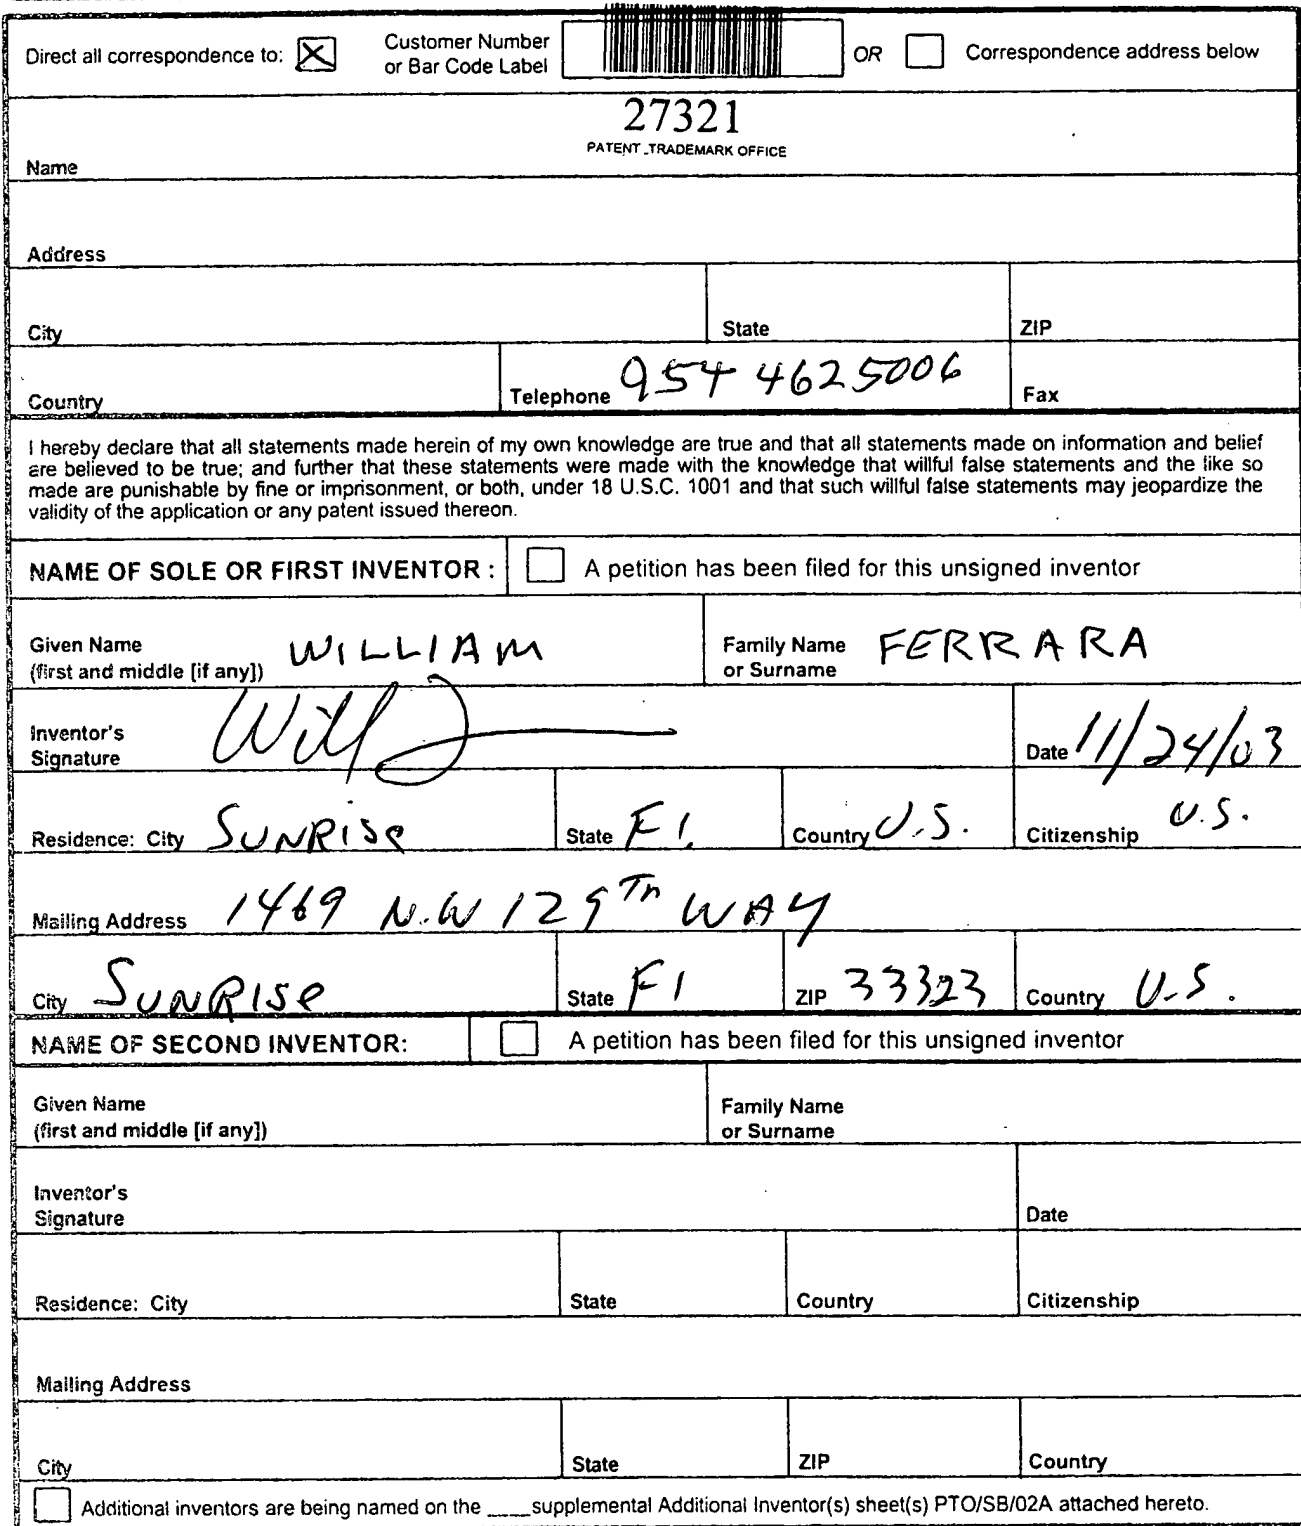 Direct all correspondence to: Customer Number or Bar Code Label OR Correspondence address below
27321
PATENT_TRADEMARK OFFICE
Name
Address
City State ZIP
Country Telephone 954 4625006 Fax
I hereby declare that all statements made herein of my own knowledge are true and that all statements made on information and belief
are believed to be true; and further that these statements were made with the knowledge that willful false statements and the like so
made are punishable by fine or imprisonment, or both, under 18 U.S.C. 1001 and that such willful false statements may jeopardize the
validity of the application or any patent issued thereon.
NAME OF SOLE OR FIRST INVENTOR : A petition has been filed for this unsigned inventor
Given Name (first and middle [if any]) WILLIAM Family Name or Surname FERRARA
Inventor's Signature Will Date 11/24/03
Residence: City SUNRISe State Fl. Country U.S. Citizenship U.S.
Mailing Address 1469 N.W 129Th WAY
City SUNRISe State Fl ZIP 33323 Country U.S.
NAME OF SECOND INVENTOR: A petition has been filed for this unsigned inventor
Given Name (first and middle [if any]) Family Name or Surname
Inventor's Signature Date
Residence: City State Country Citizenship
Mailing Address
City State ZIP Country
Additional inventors are being named on the ____supplemental Additional Inventor(s) sheet(s) PTO/SB/02A attached hereto.